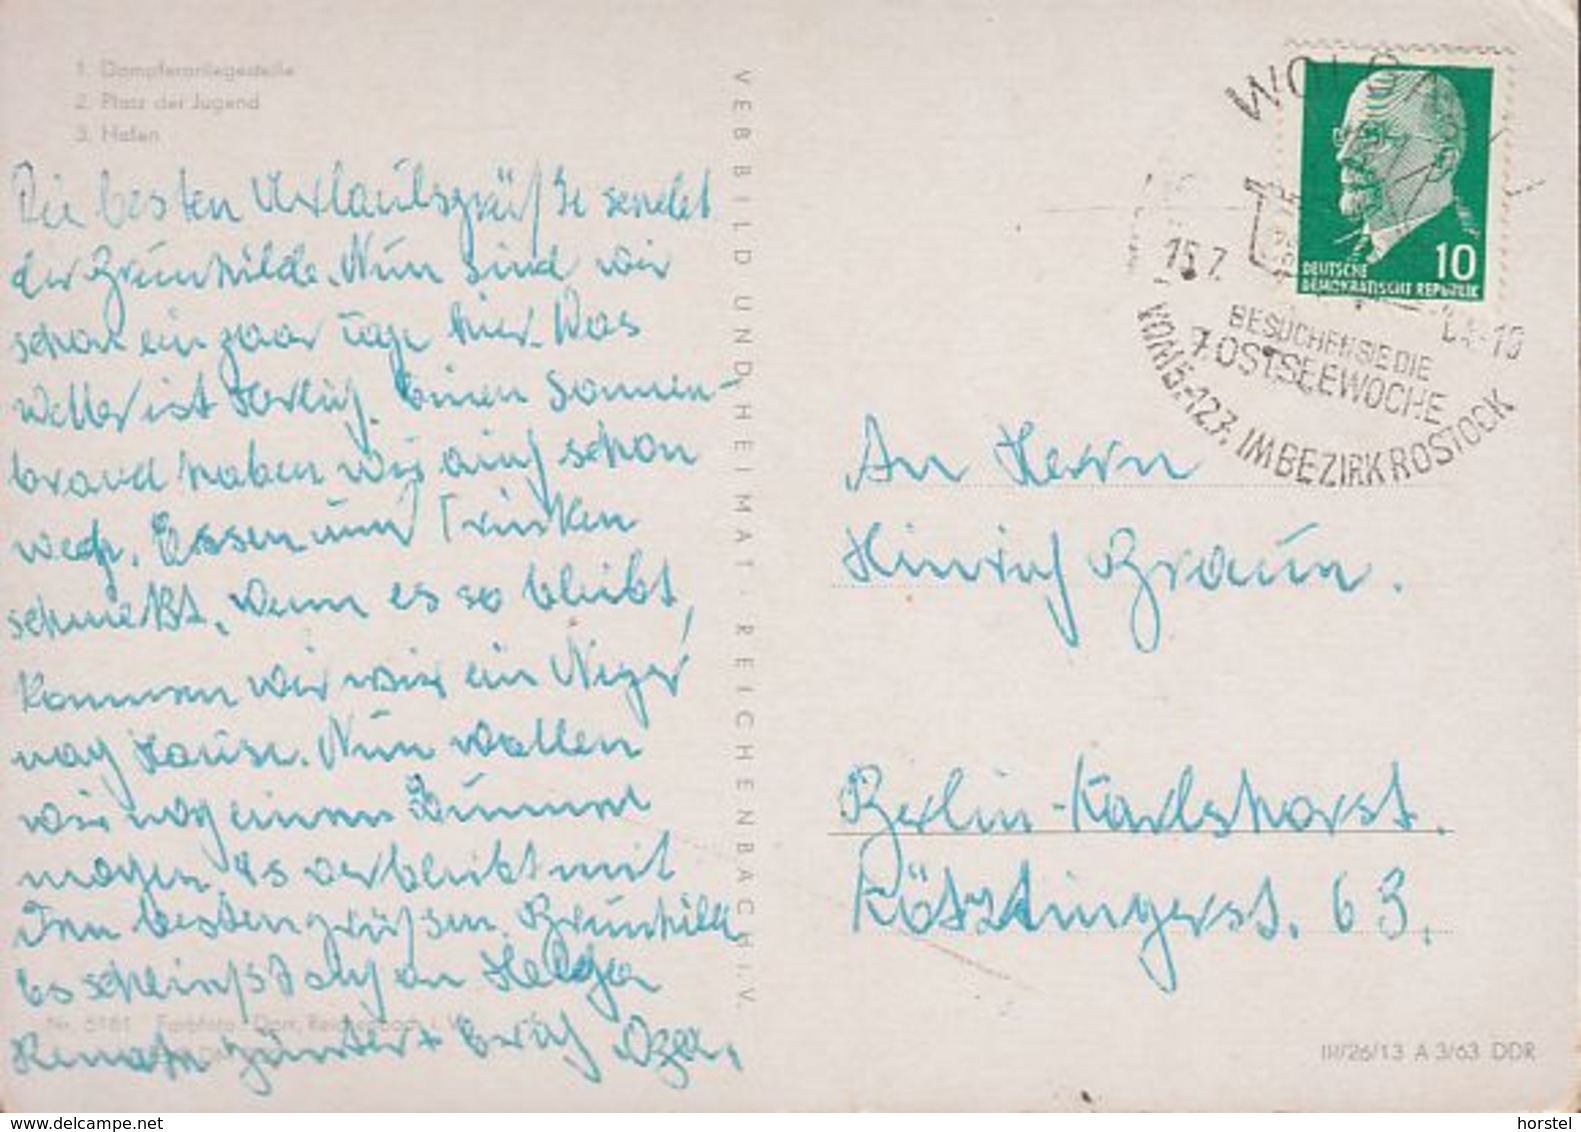 1. Dampferanlegestelle
2. Platz der Jugend
3. Hafen
Die besten Urlaubsgrüße sendet
der Brunhilde. Nun sind wir
schon ein paar Tage hier. Das
Wetter ist herlich. Einen Sonnen-
brand haben wir auch schon
weg. Essen und Trinken
schmekt. Wenn es so bleibt,
kommen wir wie ein Neger
nach Hause. Nun wollen
wir noch einen Bummel
machen. Es verbleibt mit
den besten grüßen. Brunhilde
es schließt sich an Helga
Renate Günter + Erich
Nr. 5181 Farbfoto: Darr, Reichenbach i. V.
VEB BILD UND HEIMAT · REICHENBACH I. V.
WOLGAST
15.7. 64-10
BESUCHEN SIE DIE
7. OSTSEEWOCHE
VOM 5.-12.7. IM BEZIRK ROSTOCK
10
DEUTSCHE
DEMOKRATISCHE REPUBLIK
An Herrn
Hinrich Braun.
Berlin-Karlshorst.
Kötztingerst. 63.
III/26/13 A 3/63 DDR
www.delcampe.net
horstel